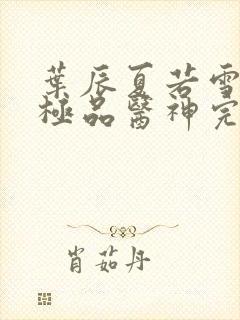 葉辰夏若雪
極品醫神完
肖茹丹